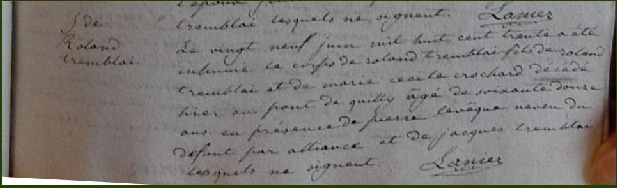 tremblai lesquels ne signent. Lanier
S. de
Roland
tremblai.
Le vingt neuf juin mil huit cent trente a été
inhumé le corps de roland tremblai fils de roland
tremblai et de marie cecile crochard décédé
hier au pont de quilly âgé de soixante douse
ans en présence de pierre levêque neveu du
defunt par alliance et de jacques tremblai
lesquels ne signent. Lanier